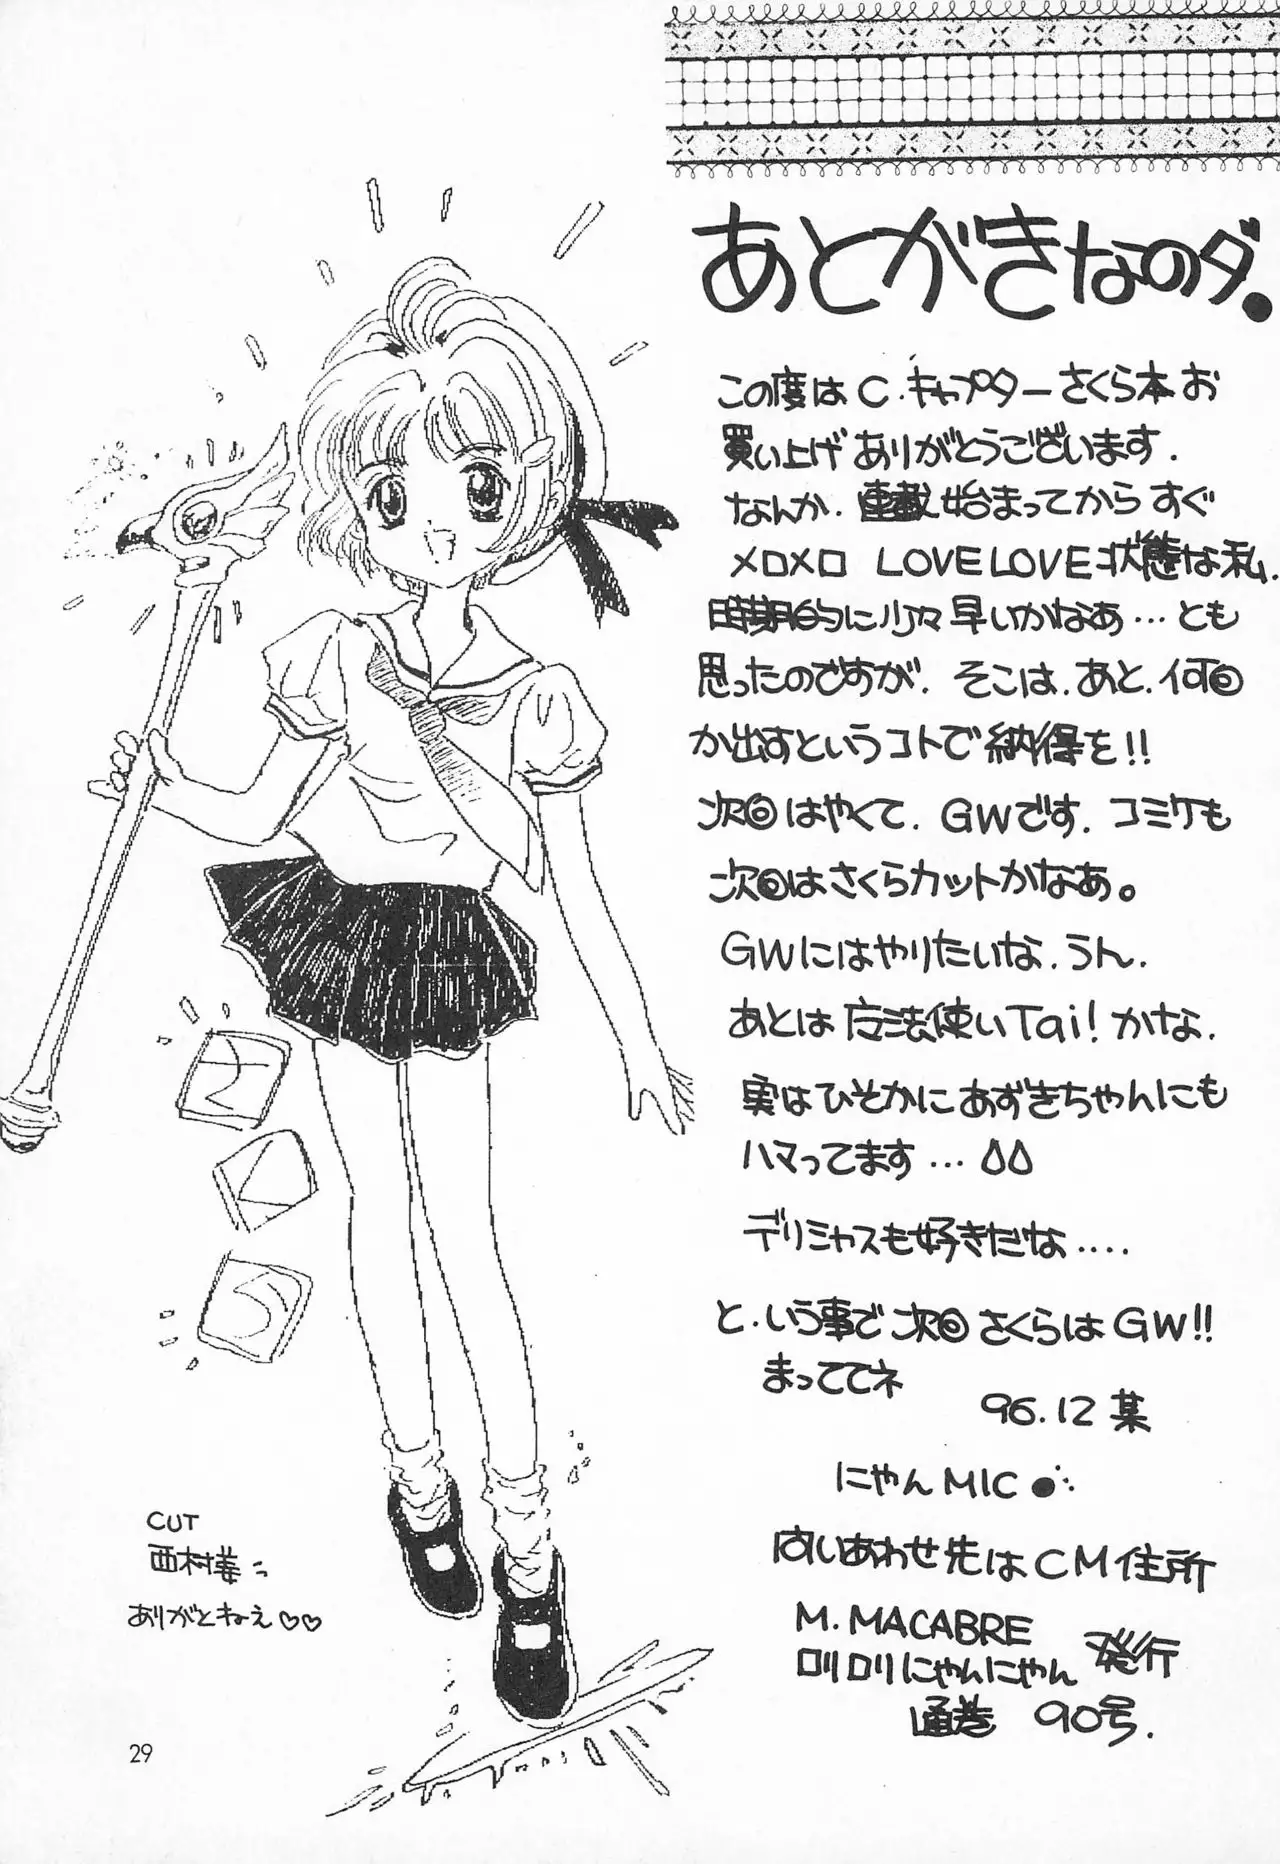 あとがきなのダ.
この度は C.キャプターさくら本お
買い上げありがとうございます.
なんか.連載始まってからすぐ
メロメロ LOVELOVE状態な私.
時期的に少々早いかなあ…とも
思ったのですが.そこは.あと.何回
か出すというコトで納得を!!
次回はやくて.GWです.コミケも
次回はさくらカットかなあ。
GWにはやりたいな.うん.
あとは魔法使いTai!かな.
実はひそかにあずきちゃんにも
ハマってます…
デリミャスも好きだな….
と.いう事で次回さくらはGW!!
まっててネ
96.12 某
にやんMIC
問いあわせ先はCM住所
M.MACABRE
ロリロリにゃんにゃん 発行
通巻 90号.
さ
く
ら
CUT
西村様
ありがとねえ♡♡
29